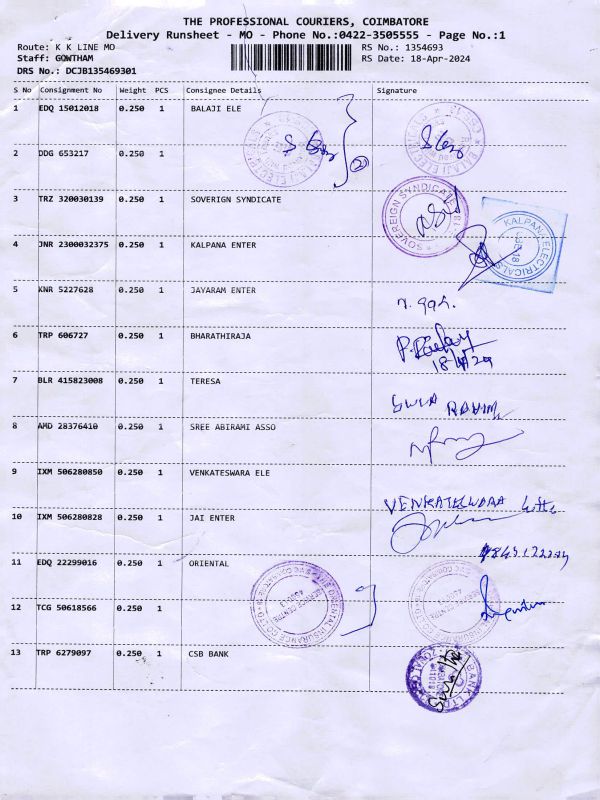 THE PROFESSIONAL COURIERS, COIMBATORE
Delivery Runsheet - MO - Phone No.:0422-3505555 - Page No.:1
Route: K K LINE MO RS No.: 1354693
Staff: GOWTHAM RS Date: 18-Apr-2024
DRS No.: DCJB135469301
S No Consignment No Weight PCS Consignee Details Signature
1 EDQ 15012018 0.250 1 BALAJI ELE
2 DDG 653217 0.250 1
3 TRZ 320030139 0.250 1 SOVERIGN SYNDICATE
SOVEREIGN SYNDICATE
4 JNR 2300032375 0.250 1 KALPANA ENTER
KALPANA ELECTRICALS
5 KNR 5227628 0.250 1 JAYARAM ENTER
6 TRP 606727 0.250 1 BHARATHIRAJA
7 BLR 415823008 0.250 1 TERESA
8 AMD 28376410 0.250 1 SREE ABIRAMI ASSO
9 IXM 506280850 0.250 1 VENKATESWARA ELE
10 IXM 506280828 0.250 1 JAI ENTER
11 EDQ 22299016 0.250 1 ORIENTAL
THE ORIENTAL INSURANCE CO LTD
12 TCG 50618566 0.250 1
13 TRP 6279097 0.250 1 CSB BANK